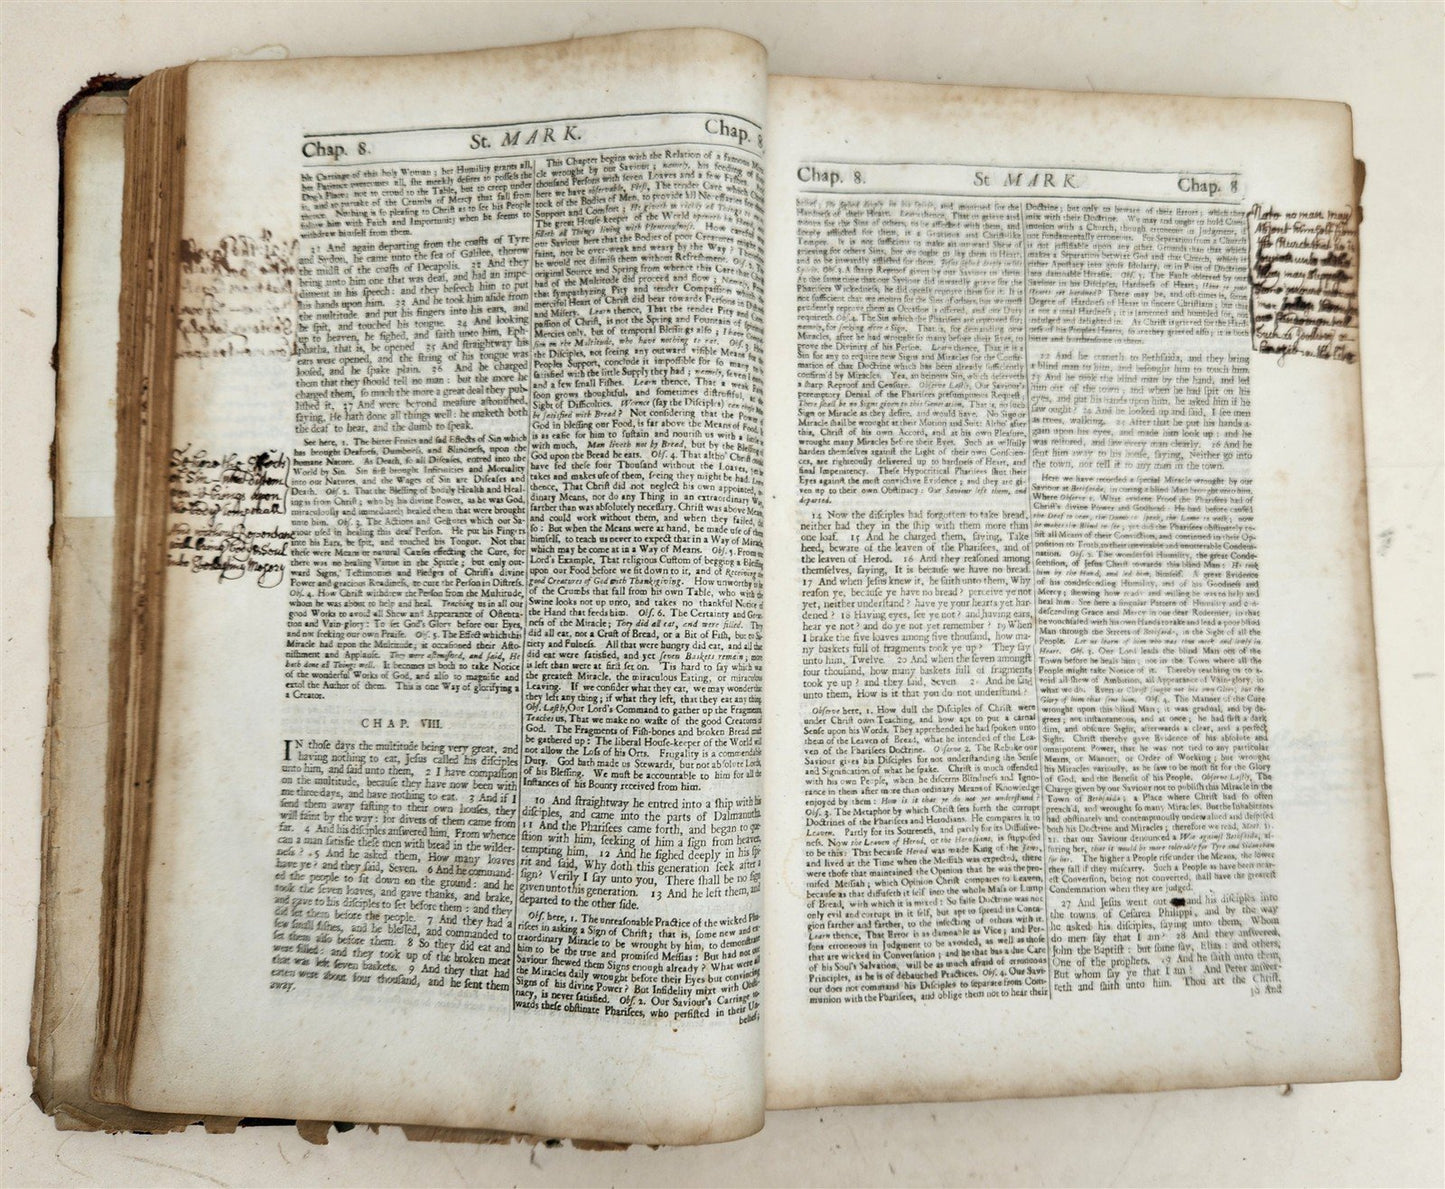 Chap. 8. St. MARK. Chap. 8
ble Carriage of this holy Woman; her Humility grants all,
her Patience overcomes all, she meekly desires to possess the
Dog's Place; not to crowd to the Table, but to creep under
it, and to partake of the Crumbs of Mercy that fall from
thence. Nothing is so pleasing to Christ as to see his People
follow him with Faith and Importunity when he seems to
withdraw himself from them.
31 And again departing from the coasts of Tyre
and Sydon, he came unto the sea of Galilee, thorow
the midst of the coasts of Decapolis. And they
bring unto him one that was deaf, and had an impe-
diment in his speech: and they beseech him to put
his hands upon him. And he took him aside from
the multitude, and put his fingers into his ears, and
he spit, and touched his tongue. And looking
up to heaven, he sighed, and saith unto him, Eph-
phatha, that is, be opened And straightway his
ears were opened, and the string of his tongue was
loosed, and he spake plain. 36 And he charged
them that they should tell no man: but the more he
charged them, so much the more a great deal they pub-
lished it, 37 And were beyond measure astonished,
saying, He hath done all things well: he maketh both
the deaf to hear, and the dumb to speak.
See here, 1. The bitter Fruits and sad Effects of Sin which
has brought Deafness, Dumbness, and Blindness, upon the
humane Nature. As Death, so all Diseases, entred into the
World by Sin. Sin first brought Infirmities and Mortality
into our Natures, and the Wages of Sin are Diseases and
Death. Obs. 2. That the Blessing of bodily Health and Heal-
ing is from Christ; who by his divine Power, as he was God,
miraculously and immediately healed them that were brought
unto him. Obs. 3. The Actions and Gestures which our Sa-
viour used in healing this deaf Person. He put his Fingers
into his Ears, he spit, and touched his Tongue. Not that
these were Means or natural Causes effecting the Cure, for
there was no healing Virtue in the Spittle; but only out-
ward Signs, Testimonies and Pledges of Christ's divine
Power and gracious Readiness, to cure the Person in Distress.
Obs. 4. How Christ withdrew the Person from the Multitude,
whom he was about to help and heal. Teaching us in all our
good Works to avoid all Show and Appearance of Ostenta-
tion and Vain-glory: To set God's Glory before our Eyes,
and not seeking our own Praise. Obs. 5. The Effect which this
Miracle had upon the Multitude; it occasioned their Asto-
nishment and Applause. They were astonished, and said, He
hath done all Things well. It becomes us both to take Notice
of the wonderful Works of God, and also to magnifie and
extol the Author of them. This is one Way of glorifying a
a Creator.
CHAP. VIII.
IN those days the multitude being very great, and
having nothing to eat, Jesus called his disciples
unto him, and said unto them, 2 I have compassion
on the multitude, because they have now been with
me three days, and have nothing to eat. 3 And if I
send them away fasting to their own houses, they
will faint by the way: for divers of them came from
far. 4 And his disciples answered him, From whence
can a man satisfie these men with bread in the wilder-
ness? 5 And he asked them, How many loaves
have ye? and they said, Seven. 6 And he command-
ed the people to sit down on the ground: and he
took the seven loaves, and gave thanks, and brake,
and gave to his disciples to set before them: and they
did set them before the people. 7 And they had a
few small fishes, and he blessed, and commanded to
set them also before them. 8 So they did eat and
were filled: and they took up of the broken meat
that was left seven baskets. 9 And they that had
eaten were about four thousand, and he sent them
away.
This Chapter begins with the Relation of a famous
cle wrought by our Saviour; namely, his feeding of
thousand Persons with seven Loaves and a few Fishes.
here we have observable, First, The tender Care which
took of the Bodies of Men, to provide all
Support and Comfort;
The great House-keeper of the World
filleth all Things living with Plenteousness. How careful
our Saviour here that the Bodies of poor Creatures might
faint, nor be over-weak and weary by the Way?
he would not dismiss them without Refreshment. Obs. 2.
original Source and Spring from whence this Care
had of the Multitude did proceed and flow; Namely,
that sympathizing Pity and tender Compassion which
merciful Heart of Christ did bear towards Persons in
and Misery. Learn thence, That the tender Pity and
passion of Christ, is not the Spring and Fountain of
Mercies only, but of temporal Blessings also;
sion on the Multitude, who have nothing to eat. Obs. 3.
the Disciples, not seeing any outward visible Means for
Peoples Support, conclude it impossible for so many to
satisfied with the little Supply they had; namely, seven
and a few small Fishes. Learn thence, That a weak
soon grows thoughtful, and sometimes distrustful, at
Sight of Difficulties. Whence (say the Disciples) can
be satisfied with Bread? Not considering that the Power of
God in blessing our Food, is far above the Means of Food,
is as easie for him to sustain and nourish us with a little
with much, Man liveth not by Bread, but by the Blessing of
God upon the Bread he eats. Obs. 4. That altho' Christ
have fed these four Thousand without the Loaves, yet
takes and makes use of them, seeing they might be had.
thence, That Christ did not neglect his own appointed,
dinary Means, nor do any Thing in an extraordinary Way
farther than was absolutely necessary. Christ was above Means,
and could work without them, and when they failed, did
so: But when the Means were at hand, he made use of them
himself, to teach us never to expect that in a Way of Miracle
which may be come at in a Way of Means. Obs. 5. From our
Lord's Example, That religious Custom of begging a Blessing
upon our Food before we sit down to it, and of Receiving the
good Creatures of God with Thanksgiving. How unworthy is
of the Crumbs that fall from his own Table, who with the
Swine looks not up unto, and takes no thankful Notice of
the Hand that feeds him. Obs. 6. The Certainty and Great-
ness of the Miracle; They did all eat, and were filled. They
did all eat, not a Crust of Bread, or a Bit of Fish, but to Sa-
tiety and Fulness. All that were hungry did eat, and all that
did eat were satisfied, and yet seven Baskets remain; more
is left than were at first set on. 'Tis hard to say which was
the greatest Miracle, the miraculous Eating, or miraculous
Leaving. If we consider what they eat, we may wonder that
they left any thing; if what they left, that they eat any thing.
Obs. Lastly, Our Lord's Command to gather up the Fragments,
Teaches us, That we make no waste of the good Creatures of
God. The Fragments of Fish-bones and broken Bread must
be gathered up: The liberal House-keeper of the World will
not allow the Loss of his Orts. Frugality is a commendable
Duty. God hath made us Stewards, but not absolute Lords,
of his Blessing. We must be accountable to him for all the
Instances of his Bounty received from him.
10 And straightway he entred into a ship with his
disciples, and came into the parts of Dalmanutha.
11 And the Pharisees came forth, and began to que-
stion with him, seeking of him a sign from heaven,
tempting him, 12 And he sighed deeply in his spi-
rit and said, Why doth this generation seek after a
sign? Verily I say unto you, There shall be no sign
given unto this generation. 13 And he left them, and
departed to the other side.
Obs. here, 1. The unreasonable Practice of the wicked Pha-
risees in asking a Sign of Christ; that is, some new and ex-
traordinary Miracle to be wrought by him, to demonstrate
him to be the true and promised Messias: But had not our
Saviour shewed them Signs enough already? What were all
the Miracles daily wrought before their Eyes but convincing
Signs of his divine Power? But Infidelity mixt with Obsti-
nacy, is never satisfied. Obs. 2. Our Saviour's Carriage to-
wards these obstinate Pharisees, who persisted in their Un-
belief;
Chap. 8. St MARK. Chap. 8
belief; He sighed deeply in his Spirit, and mourned for the
Hardness of their Heart. Learn thence, That to grieve and
mourn for the Sins of others, to be affected with them, and
deeply afflicted for them, is a Gracious and Christ-like
Temper. It is not sufficient to make an outward Shew of
grieving for others Sins, but we ought to lay them to Heart,
and to be inwardly afflicted for them. Jesus sighed deeply in his
Spirit. Obs. 3. A sharp Reproof given by our Saviour to them.
At the same time that our Saviour did inwardly grieve for the
Pharisees Wickedness, he did openly reprove them for it. It is
not sufficient that we mourn for the Sins of others, but we must
prudently reprove them as Occasion is offered, and our Duty
requireth. Obs. 4. The Sin which the Pharisees are reproved for;
namely, for seeking after a Sign. That is, for demanding new
Miracles, after he had wrought so many before their Eyes, to
prove the Divinity of his Person. Learn thence, That it is a
Sin for any to require new Signs and Miracles for the Confir-
mation of that Doctrine which has been already sufficiently
confirm'd by Miracles. Yea, so heinous Sin, which deserveth
a sharp Reproof and Censure. Observe Lastly, Our Saviour's
peremptory Denial of the Pharisees presumptuous Request;
There shall be no Signs given to this Generation. That is, no such
Sign or Miracle as they desire, and would have. No Sign or
Miracle shall be wrought at their Motion and Suit: Altho' after
this, Christ of his own Accord, and at his own Pleasure,
wrought many Miracles before their Eyes. Such as wilfully
harden themselves against the Light of their own Conscien-
ces, are righteously delivered up to hardness of Heart, and
final Impenitency. These Hypocritical Pharisees shut their
Eyes against the most convictive Evidence; and they are gi-
ven up to their own Obstinacy: Our Saviour left them, and
departed.
14 Now the disciples had forgotten to take bread,
neither had they in the ship with them more than
one loaf. 15 And he charged them, saying, Take
heed, beware of the leaven of the Pharisees, and of
the leaven of Herod. 16 And they reasoned among
themselves, saying, It is because we have no bread.
17 And when Jesus knew it, he saith unto them, Why
reason ye, because ye have no bread? perceive ye not
yet, neither understand? have ye your hearts yet har-
dened? 18 Having eyes, see ye not? and having ears,
hear ye not? and do ye not yet remember? 19 When
I brake the five loaves among five thousand, how ma-
ny baskets full of fragments took ye up? They say
unto him, Twelve. 20 And when the seven amongst
four thousand, how many baskets full of fragments
took ye up? and they said, Seven 2 And he said
unto them, How is it that you do not understand?
Observe here, 1. How dull the Disciples of Christ were
under Christ own Teaching, and how apt to put a carnal
Sense upon his Words. They apprehended he had spoken unto
them of the Leaven of Bread, what he intended of the Lea-
ven of the Pharisees Doctrine. Observe 2. The Rebuke our
Saviour gives his Disciples for not understanding the Sense
and Signification of what he spake. Christ is much offended
with his own People, when he discerns Blindness and Igno-
rance in them after more than ordinary Means of Knowledge
enjoyed by them: How is it that ye do not yet understand?
Obs. 3. The Metaphor by which Christ sets forth the corrupt
Doctrines of the Pharisees and Herodians. He compares it to
Leaven. Partly for its Sourness, and partly for its Diffusive-
ness. Now the Leaven of Herod, or the Herodians, is supposed
to be this: That because Herod was made King of the Jews,
and lived at the Time when the Messiah was expected, there
were those that maintained the Opinion that he was the pro-
mised Messiah; which Opinion Christ compares to Leaven,
because as that diffuseth it self into the whole Mass or Lump
of Bread, with which it is mixed: So false Doctrine was not
only evil and corrupt in it self, but apt to spread its Conta-
gion farther and farther, to the infecting of others with it.
Learn thence, That Error is as damnable as Vice; and Per-
sons erroneous in Judgment to be avoided, as well as those
that are wicked in Conversation; and he that has a due Care
of his Soul's Salvation, will be as much afraid of erroneous
Principles, as he is of debauched Practices. Obs. 4. Our Savi-
our does not command his Disciples to separate from Com-
munion with the Pharisees, and oblige them not to hear their
Doctrine; but only to beware of their Errors; which they
mix with their Doctrine. We may and ought to hold Com-
munion with a Church, though erroneous in Judgment, if
not fundamentally erroneous. For Separation from a Church
is not justifiable upon any other Grounds than that which
makes a Separation betwixt God and that Church, which is
either Apostasy into gross Idolatry, or in Point of Doctrine
into damnable Heresie. Obs. 5. The Fault observed by our
Saviour in his Disciples, Hardness of Heart;
There may be, and oft-times is, some
Degree of Hardness of Heart in sincere Christians; but this
is not a total Hardness; it is lamented and humbled for, not
indulged and delighted in. As Christ is grieved for the Hard-
ness of his Peoples Hearts, so are they grieved also; it is both
bitter and burthensome to them.
22 And he cometh to Bethsaida, and they bring
a blind man to him, and besought him to touch him.
23 And he took the blind man by the hand, and led
him out of the town; and when he had spit on his
eyes, and put his hands upon him, he asked him if he
saw ought? And he looked up and said, I see men
as trees, walking. After that he put his hands a-
gain upon his eyes, and made him look up: and he
was restored, and saw every man clearly. 26 And he
sent him away to his house, saying, Neither go into
the town, nor tell it to any man in the town.
Here we have recorded a special Miracle wrought by our
Saviour at Bethsaida, in curing a blind Man brought unto him.
Where Observe 1. What evident Proof the Pharisees had of
Christ's divine Power and Godhead. He had before caused
the Deaf to hear, the Dumb to speak, the Lame to walk; now
he makes the Blind to see; yet did the Pharisees obstinately re-
sist all Means of their Conviction, and continued in their Op-
position to Truth to their inevitable and unutterable Condem-
nation. Obs. 2. The wonderful Humility, the great Conde-
scension, of Jesus Christ towards this blind Man: He took
him by the Hand, and led him, himself. A great Evidence
of his condescending Humility, and of his Goodness and
Mercy; shewing how ready and willing he was to help and
heal him. See here a singular Pattern of Humility and con-
descending Grace and Mercy in our dear Redeemer, in that
he vouchsafed with his own Hands to take and lead a poor blind
Man through the Streets of Bethsaida, in the Sight of all the
People. Let us learn of him who was thus meek and lowly in
Heart. Obs. 3. Our Lord leads the blind Man out of the
Town before he heals him; not in the Town where all the
People might take Notice of it. Thereby teaching us to a-
void all shew of Ambition, all Appearance of Vain-glory, in
what we do. Even as Christ sought not his own Glory, but the
Glory of him that sent him. Obs. 4. The Manner of the Cure
wrought upon this blind Man; it was gradual, and by de-
grees; not instantaneous, and at once; he had first a dark
and obscure Sight, afterwards a clear, and a perfect
Sight. Christ thereby gave Evidence of his absolute and
omnipotent Power, that he was not tied to any particular
Means, or Manner, or Order of Working; but wrought
his Miracles variously, as he saw to be most fit for the Glory
of God, and the Benefit of his People. Observe Lastly, The
Charge given by our Saviour not to publish this Miracle in the
Town of Bethsaida; a Place where Christ had so often
preach'd, and wrought so many Miracles. But the Inhabitants
had obstinately and contemptuously undervalued and despised
both his Doctrine and Miracles; therefore we read, Matt. 11.
21. that our Saviour denounced a Woe against Bethsaida, as-
suring her, that it would be more tolerable for Tyre and Sidon than
for her. The higher a People rise under the Means, the lower
they fall if they miscarry. Such a People as have been near-
est Conversion, being not converted, shall have the greatest
Condemnation when they are judged.
27 And Jesus went out and his disciples into
the towns of Cesarea Philippi, and by the way
he asked his disciples, saying unto them, Whom
do men say that I am? 28 And they answered,
John the Baptist: but some say, Elias: and others,
One of the prophets. And he saith unto them,
But whom say ye that I am? And Peter answer-
eth and saith unto him. Thou art the Christ.
30 And